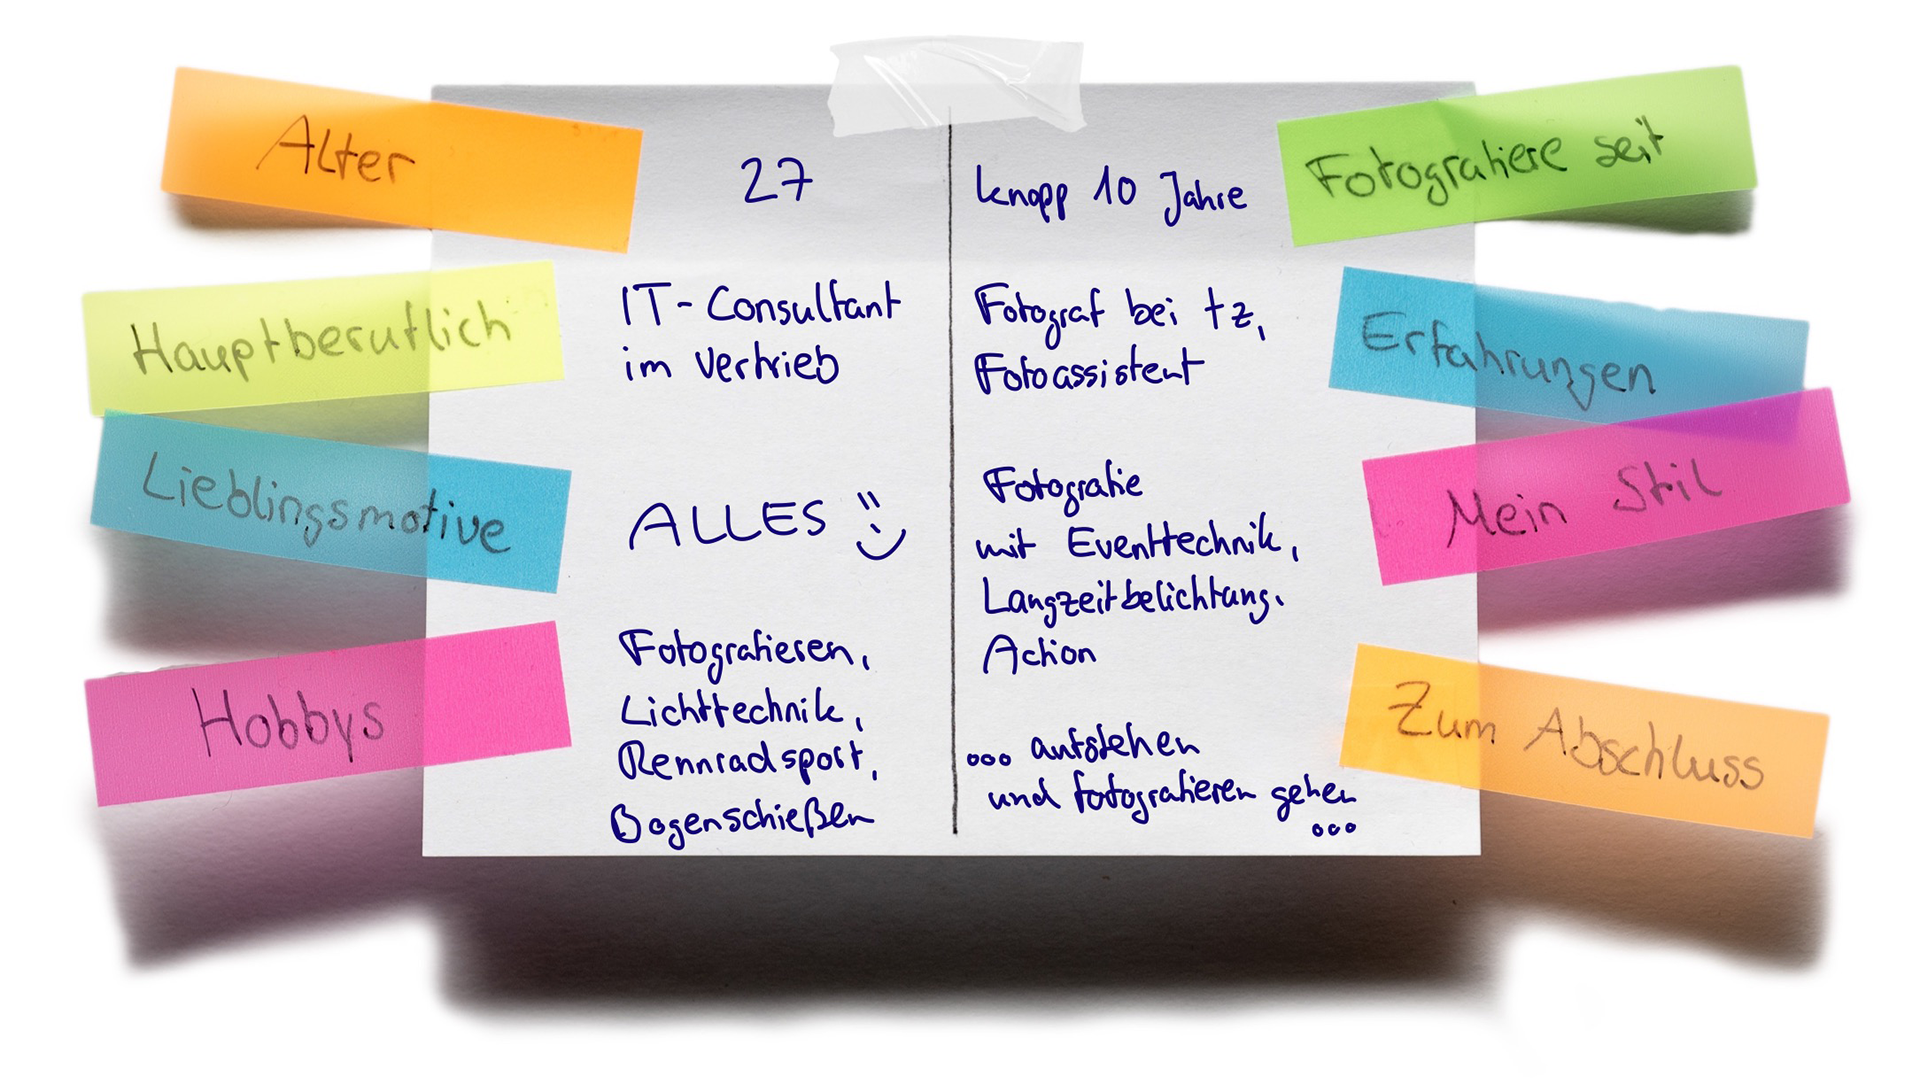 Alter
27
Hauptberuflich
IT-Consultant
im Vertrieb
Lieblingsmotive
ALLES :)
Hobbys
Fotografieren,
Lichttechnik,
Rennradsport,
Bogenschießen
Fotografiere seit
knapp 10 Jahre
Erfahrungen
Fotograf bei tz,
Fotoassistent
Mein Stil
Fotografie
mit Eventtechnik,
Langzeitbelichtung.
Action
Zum Abschluss
... aufstehen
und fotografieren gehen
...